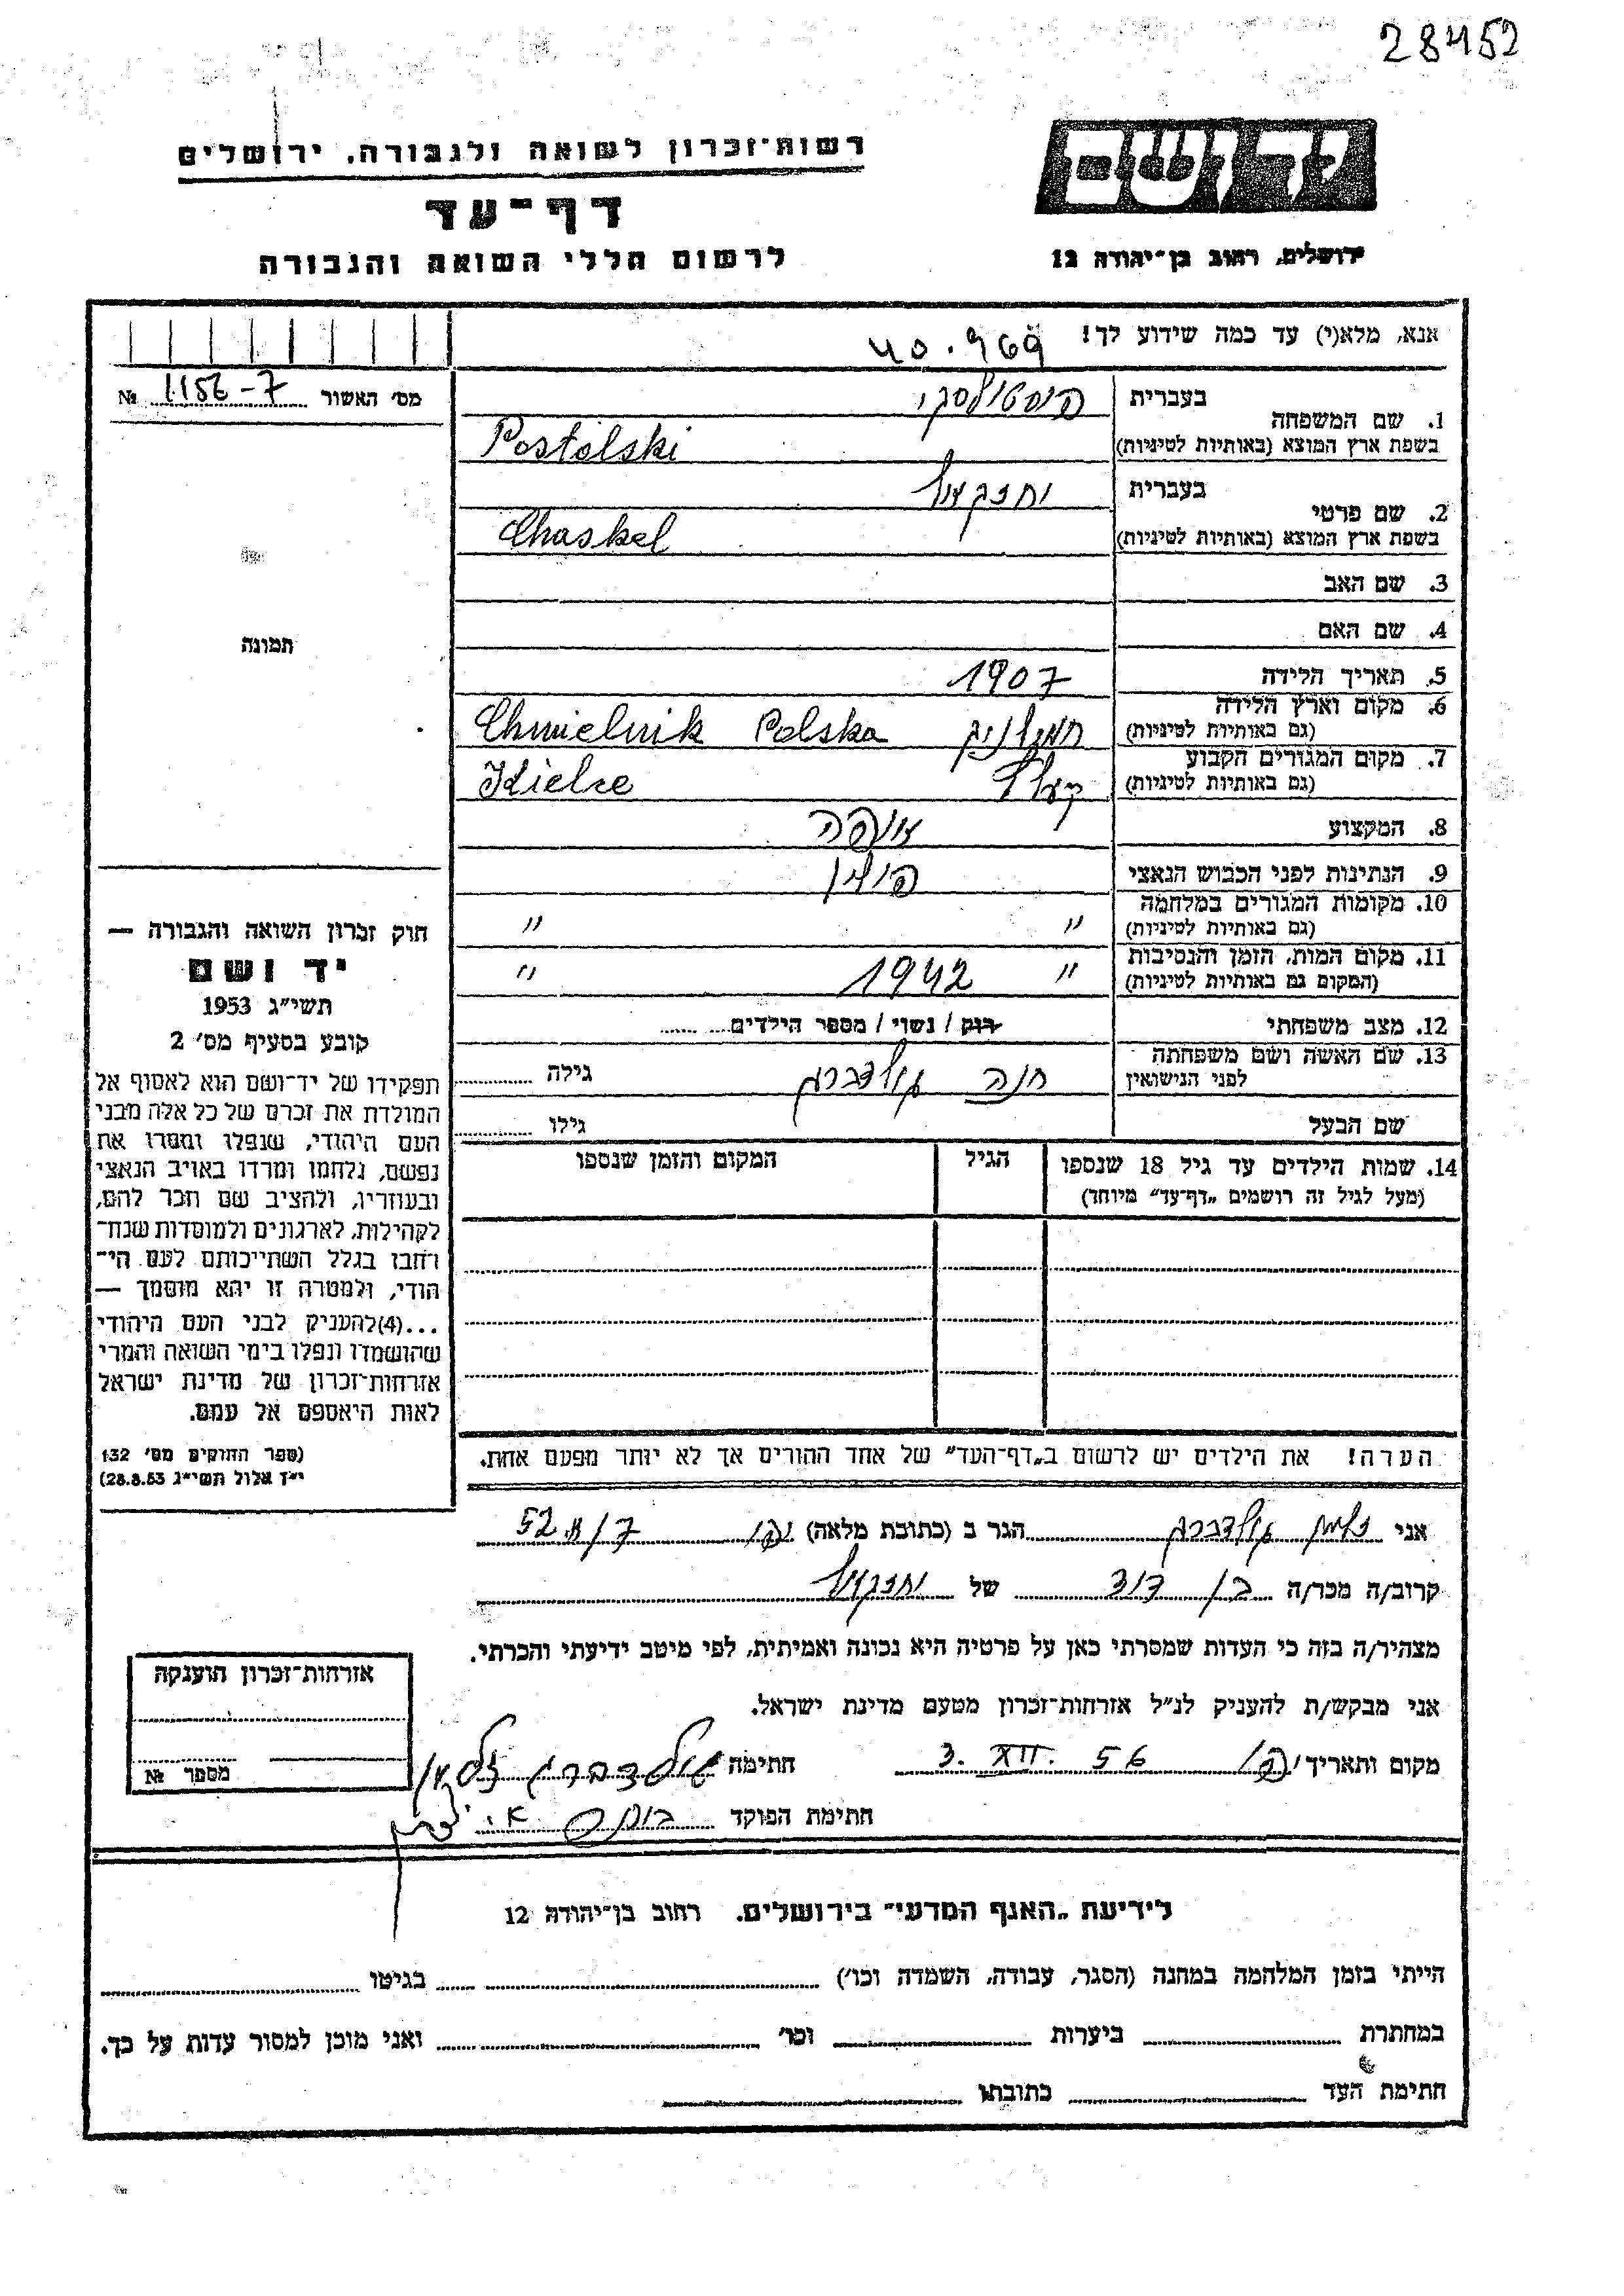 28452
יד ושם
רשות־זכרון לשואה ולגבורה, ירושלים
דף־עד
לרשום חללי השואה והגבורה
ירושלים, רחוב בן־יהודה 12
אנא, מלא(י) עד כמה שידוע לך!
40.969
מס׳ האשור 1156-7 №
תמונה
חוק זכרון השואה והגבורה —
יד ושם
תשי״ג 1953
קובע בסעיף מס׳ 2
תפקידו של יד־ושם הוא לאסוף אל
המולדת את זכרם של כל אלה מבני
העם היהודי, שנפלו ומסרו את
נפשם, נלחמו ומרדו באויב הנאצי
ובעוזריו, ולהציב שם וזכר להם,
לקהילות, לארגונים ולמוסדות שנח־
רחבו בגלל השתייכותם לעם הי־
הודי, ולמטרה זו יהא מוסמך —
...(4)להעניק לבני העם היהודי
שהושמדו ונפלו בימי השואה והמרי
אזרחות־זכרון של מדינת ישראל
לאות היאספם אל עמם.
(ספר החוקים מס׳ 132
י״ז אלול תשי״ג 28.8.53)
1. שם המשפחה
בעברית פוסטולסקי
בשפת ארץ המוצא (באותיות לטיניות) Postolski
2. שם פרטי
בעברית יחזקאל
בשפת ארץ המוצא (באותיות לטיניות) Chaskel
3. שם האב
4. שם האם
5. תאריך הלידה 1907
6. מקום וארץ הלידה
(גם באותיות לטיניות) חמילניק Chmielnik Polska
7. מקום המגורים הקבוע
(גם באותיות לטיניות) קעלץ Kielce
8. המקצוע אופה
9. הנתינות לפני הכבוש הנאצי פולין
10. מקומות המגורים במלחמה
(גם באותיות לטיניות) " "
11. מקום המות, הזמן והנסיבות
(המקום גם באותיות לטיניות) " 1942 "
12. מצב משפחתי רווק / נשוי / מספר הילדים
13. שם האשה ושם משפחתה
לפני הנישואין חנה גולדברג גילה
שם הבעל גילו
14. שמות הילדים עד גיל 18 שנספו הגיל המקום והזמן שנספו
(מעל לגיל זה רושמים „דף־עד״ מיוחד)
הערה! את הילדים יש לרשום ב„דף־העד״ של אחד ההורים אך לא יותר מפעם אחת.
אני זלמן גולדברג הגר ב (כתובת מלאה) יפו
קרוב/ה מכר/ה בן דוד של יחזקאל
מצהיר/ה בזה כי העדות שמסרתי כאן על פרטיה היא נכונה ואמיתית, לפי מיטב ידיעתי והכרתי.
אני מבקש/ת להעניק לנ״ל אזרחות־זכרון מטעם מדינת ישראל.
מקום ותאריך יפו 3. XII. 56 חתימה גולדברג זלמן
חתימת הפוקד
אזרחות־זכרון הוענקה
מספר №
לידיעת „האגף המדעי״ בירושלים, רחוב בן־יהודה 12
הייתי בזמן המלחמה במחנה (הסגר, עבודה, השמדה וכו׳) בגיטו
במחתרת ביערות וכו׳ ואני מוכן למסור עדות על כך.
חתימת העד כתובתו